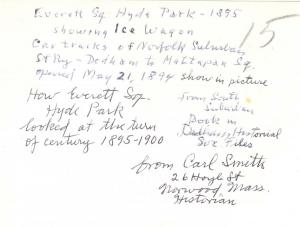 Everett Sq Hyde Park - 1895
15
showing Ice Wagon
Car tracks of Norfolk Suburban
St Ry - Dedham to Mattapan Sq.
opened May 21, 1894 show in picture
How Everett Sq.
Hyde Park
looked at the turn
of century 1895-1900
From South
Suburban
Book in
Dedham Historical
Soc Files
from Carl Smith
26 Hoyle St
Norwood Mass.
Historian